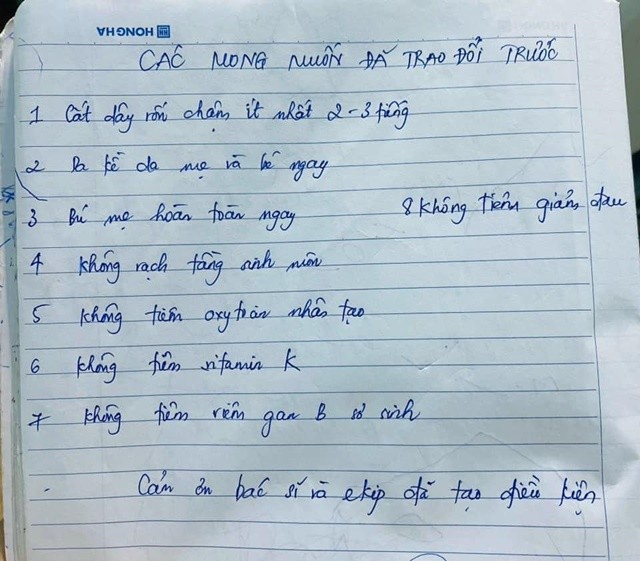 HONG HA
HONG HA
CÁC MONG MUỐN ĐÃ TRAO ĐỔI TRƯỚC
1 Cắt dây rốn chậm ít nhất 2-3 tiếng
2 Da kề da mẹ và bé ngay
3 Bú mẹ hoàn toàn ngay
8 Không tiêm giảm đau
4 Không rạch tầng sinh môn
5 Không tiêm oxytoxin nhân tạo
6 Không tiêm vitamin K
7 Không tiêm viêm gan B sơ sinh
Cảm ơn bác sĩ và ekip đã tạo điều kiện